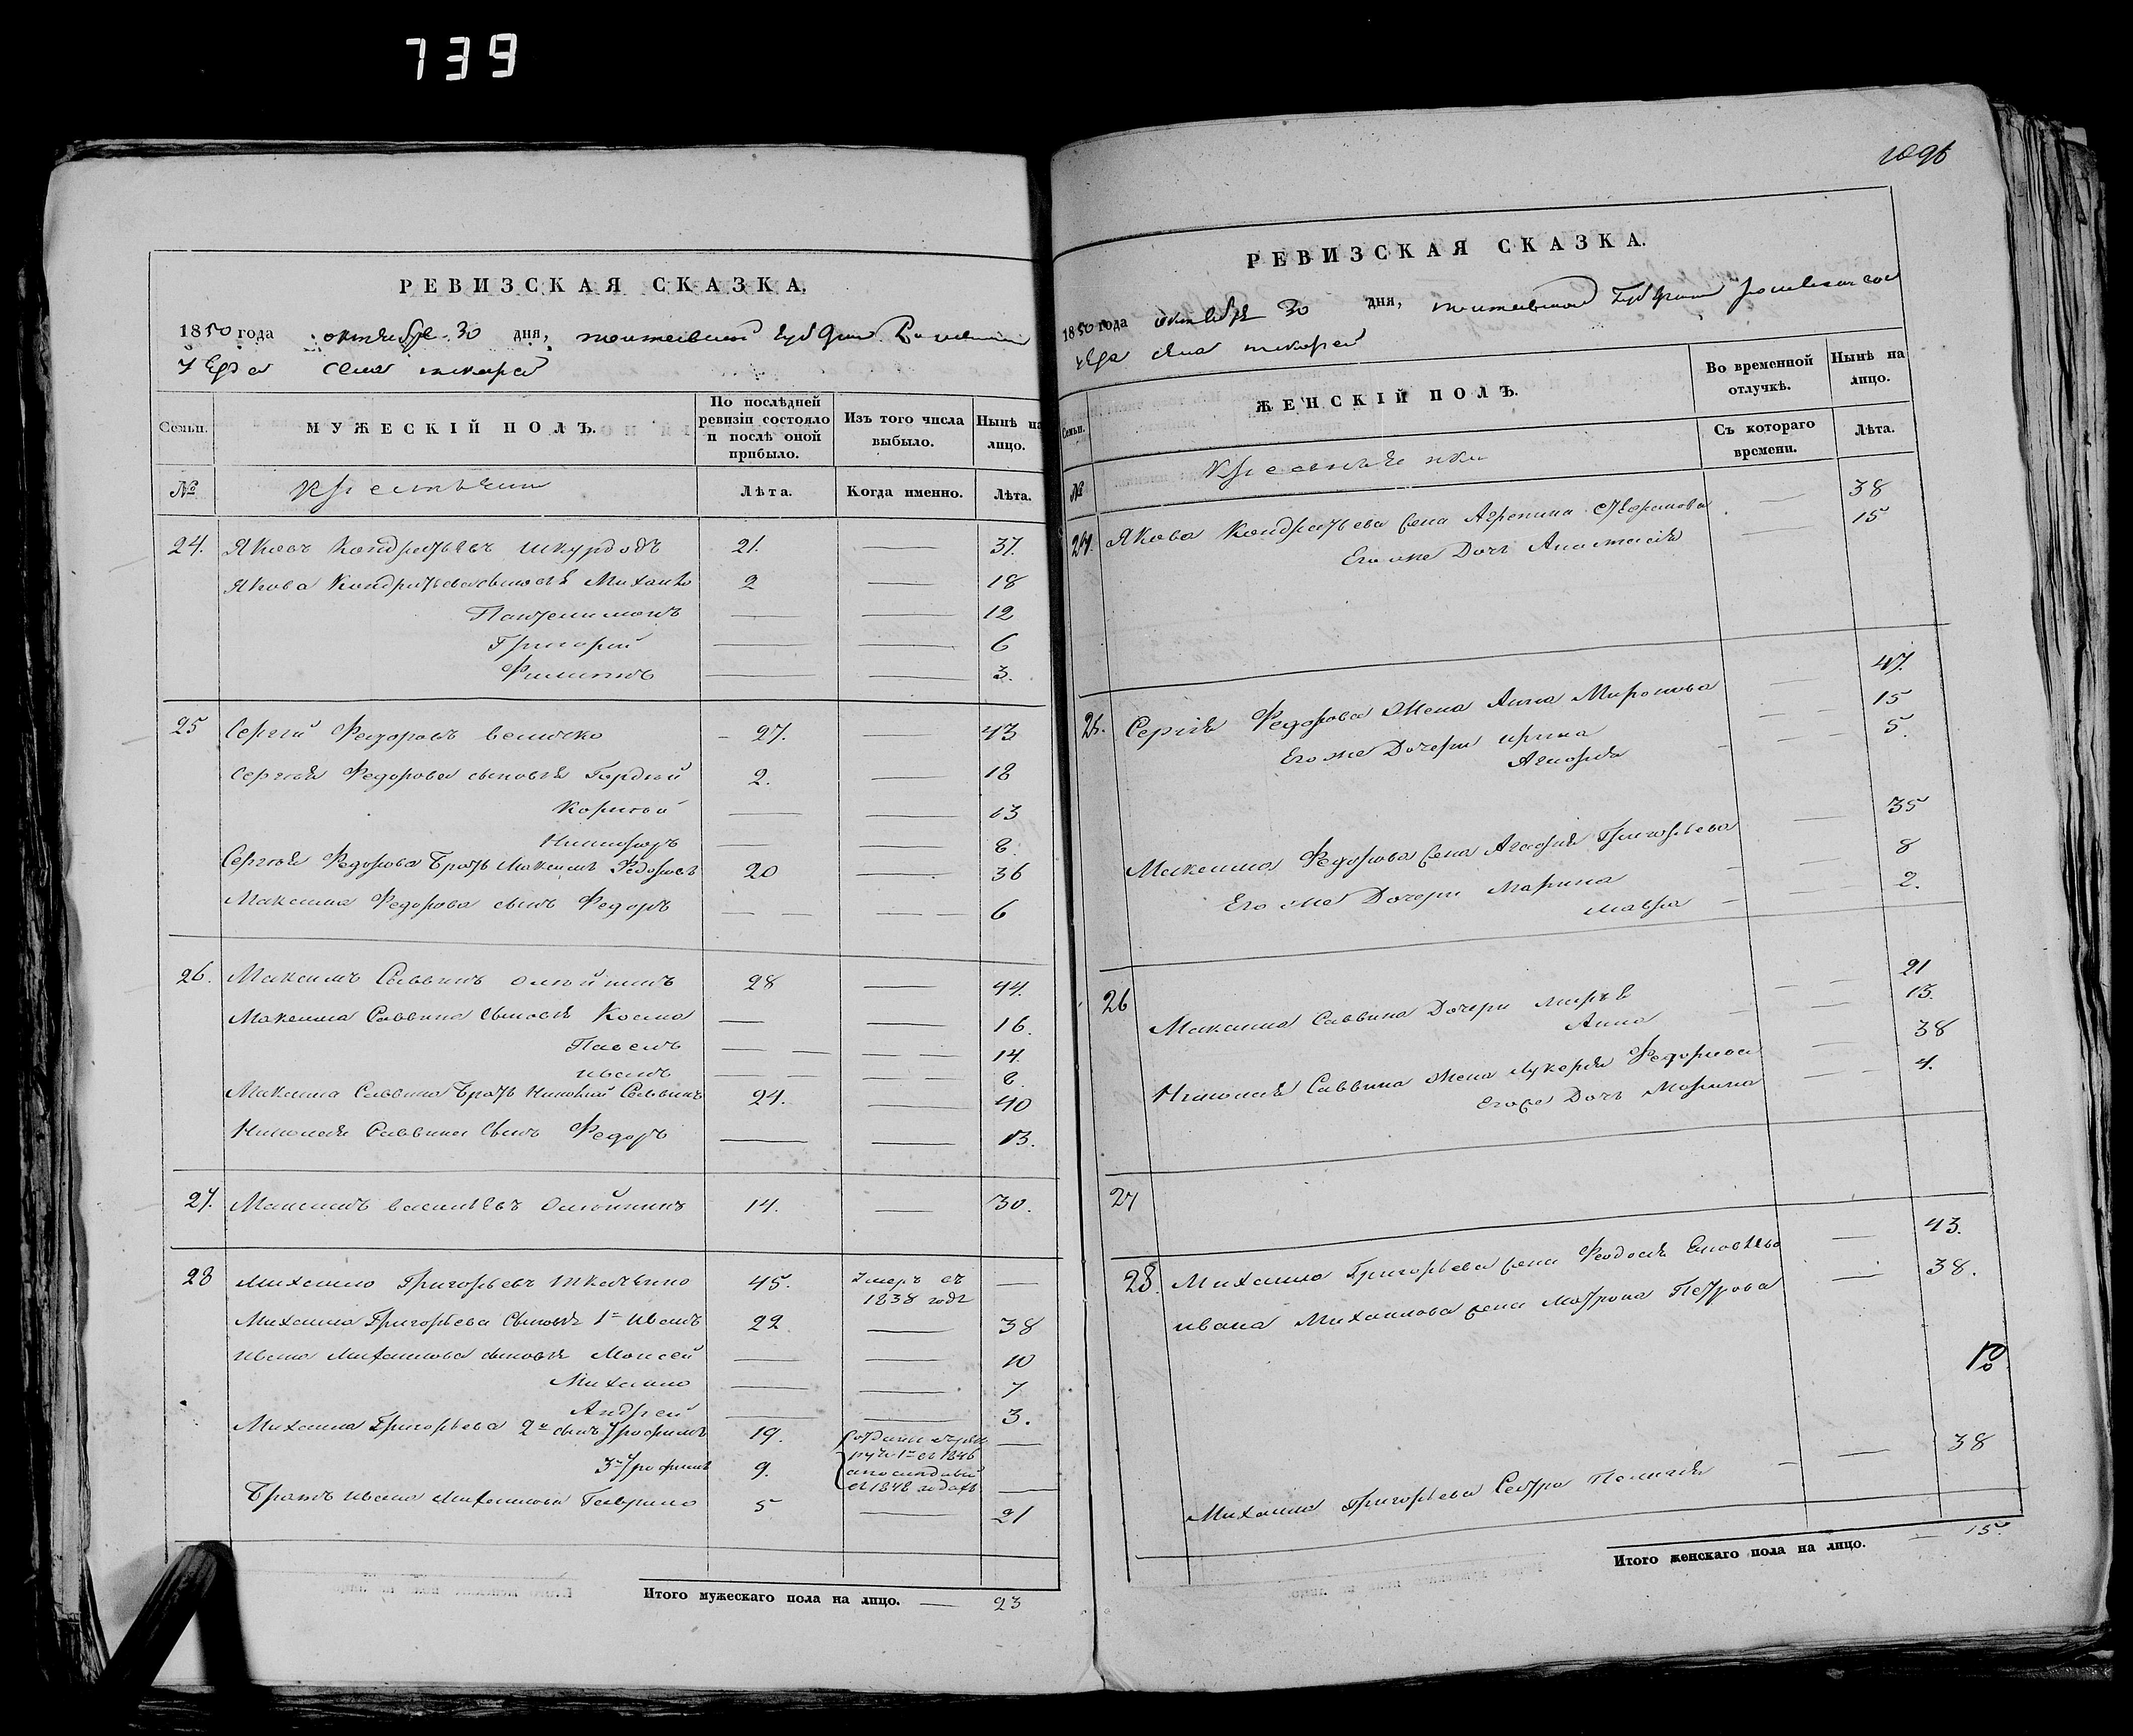 739
1096
РЕВИЗСКАЯ СКАЗКА.
1850 года октября 30 дня,
села
Семьи. МУЖЕСКІЙ ПОЛЪ. По послѣдней ревизіи состояло и послѣ оной прибыло. Изъ того числа выбыло. Нынѣ на лицо.
№ Крестьяне Лѣта. Когда именно. Лѣта.
24. Яковъ Кондратьевъ Шкурдодъ 21. — 37.
Якова Кондратьева сыновья Михайло 2 — 18
Пантелимонъ — — 12
Григорій — — 6
Филиппъ — — 3.
25 Сергій Федоровъ Величко 27. — 43
Сергѣя Федорова сыновья Гордѣй 2. — 18
Корнѣй — — 13
Никифоръ — — 8.
Сергѣя Федорова братъ Максимъ Федоровъ 20 — 36
Максима Федорова сынъ Федоръ — — 6
26. Максимъ Саввинъ Олѣйникъ 28 — 44.
Максима Саввина сыновья Косма — — 16.
Павелъ — — 14.
Иванъ — — 8.
Максима Саввина братъ Николай Саввинъ 24. — 40
Николая Саввина сынъ Федоръ — — 13.
27. Максимъ Васильевъ Олейникъ 14. — 30.
28 Михайло Григорьевъ 45. Умеръ въ 1838 годѣ —
Михаила Григорьева сыновья 1й Иванъ 22 — 38
Ивана Михайлова сыновья Моисей — — 10
Михайло — — 7
Андрей — — 3.
Михаила Григорьева 2й сынъ Трофимъ 19. —
3й Трофимъ 9. 1й въ 1846
въ 1848 годахъ —
Братъ Ивана Михайлова Гаврило 5 — 21
Итого мужескаго пола на лицо. — 23
РЕВИЗСКАЯ СКАЗКА.
1850 года октября 30 дня,
села
Семьи. ЖЕНСКІЙ ПОЛЪ. Во временной отлучкѣ. Нынѣ на лицо.
№ Съ котораго времени. Лѣта.
24. Якова Кондратьева жена Агрепина — 38
Его же дочь Анастасія — 15
25. Сергія Федорова жена Анна Миронова — 47.
Его же дочери Ирина — 15
— 5.
Максима Федорова жена Григорьева — 35
Его же дочери Марина — 8
Мавра — 2.
26 Максима Саввина дочери Марья — 21
Анна — 13.
Николая Саввина жена Лукерія Федорова — 38
Его же дочь Марина — 4.
27
28. Михаила Григорьева жена Феодосія — 43.
Ивана Михаилова жена Матрона Петрова — 38.
Михаила Григорьева сестра Пелагія — 38
Итого женскаго пола на лицо. — 15.